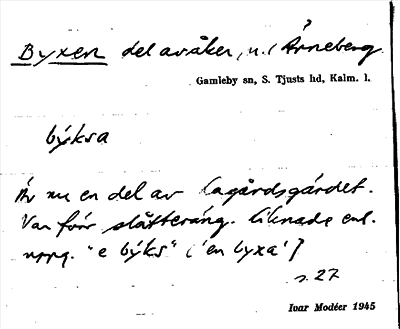 Byxen del av åker, u. Årneberg
Gamleby sn, S. Tjusts hd, Kalm. l.
býksa
Är nu en del av lagårdsgärdet.
Var förr slåtteräng. liknade enl.
uppg. "e býks" ('en byxa')
s. 27
Ivar Modéer 1945